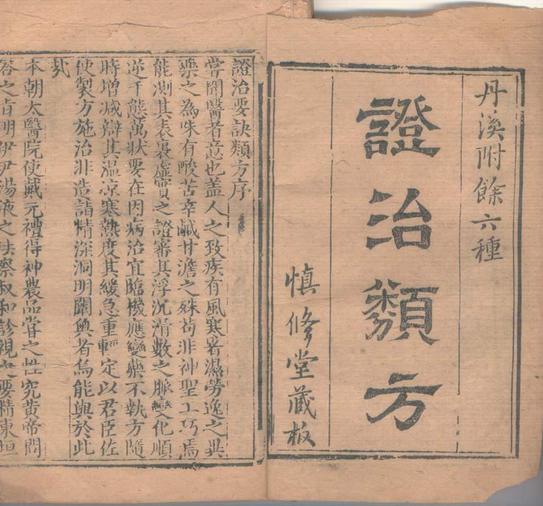 丹溪附餘六種
證治類方
慎修堂藏板
證治要訣類方序
嘗聞醫者意也盖人之致疾有風寒暑濕勞逸之異
藥之為味有酸苦辛鹹甘澹之殊苟非神聖工巧焉
能測其表裏虛實之證審其浮沉滑數之脉變化順
逆千態萬狀要在因病治宜臨機應變藥不執方隨
時增減辯其溫凉寒熱度其緩急重輕定以君臣佐
使製方施治非造詣精深洞明閫奥者烏能與於此
哉
本朝太醫院使戴元禮得神農品嘗之性究黃帝問
答之旨明伊尹湯液之法察叔和診視之要精東垣